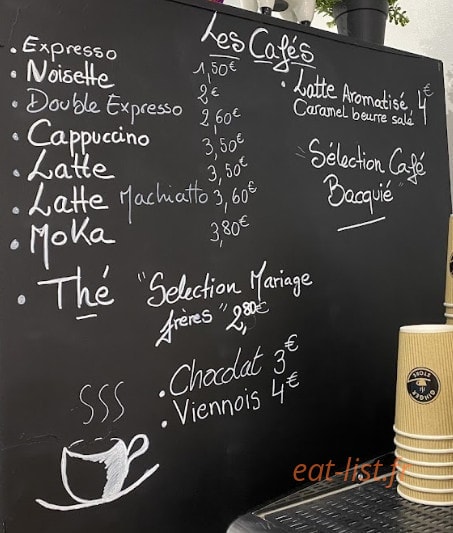 Les Cafés
. Expresso 1,50€
• Noisette 2€
• Double Expresso 2,60€
• Cappuccino 3,50€
• Latte 3,50€
• Latte Machiatto 3,60€
• Moka 3,80€
• Latte Aromatisé 4€
Caramel beurre salé
"Sélection Café
Bacquié"
• Thé "Selection Mariage
frères" 2,80€
• Chocolat 3€
• Viennois 4€
GINGER
eat-list.fr